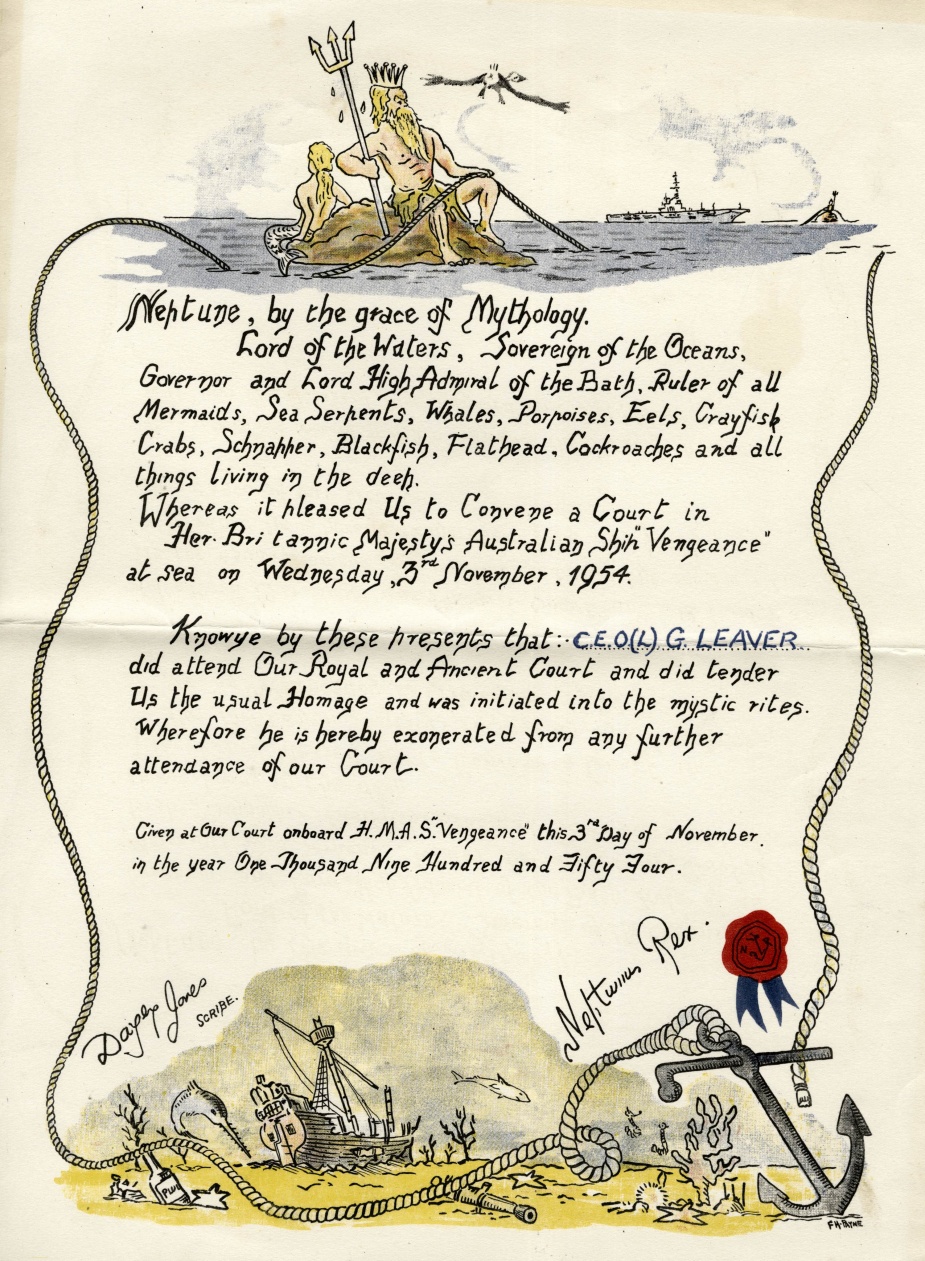 Neptune, by the grace of Mythology.
Lord of the Waters, Sovereign of the Oceans,
Governor and Lord High Admiral of the Bath, Ruler of all
Mermaids, Sea Serpents, Whales, Porpoises, Eels, Crayfish
Crabs, Schnapper, Blackfish, Flathead, Cockroaches and all
things living in the deep.
Whereas it pleased Us to Convene a Court in
Her Britannic Majesty's Australian Ship "Vengeance"
at sea on Wednesday, 3rd November, 1954.
Knowye by these presents that:- C.E.O(L) G LEAVER
did attend Our Royal and Ancient Court and did tender
Us the usual Homage and was initiated into the mystic rites.
Wherefore he is hereby exonerated from any further
attendance of our Court.
Given at Our Court onboard H.M.A.S. "Vengeance" this 3rd Day of November
in the year One Thousand Nine Hundred and Fifty Four.
Neptunus Rex.
Jones
SCRIBE.
PLUM
F.H. PAYNE